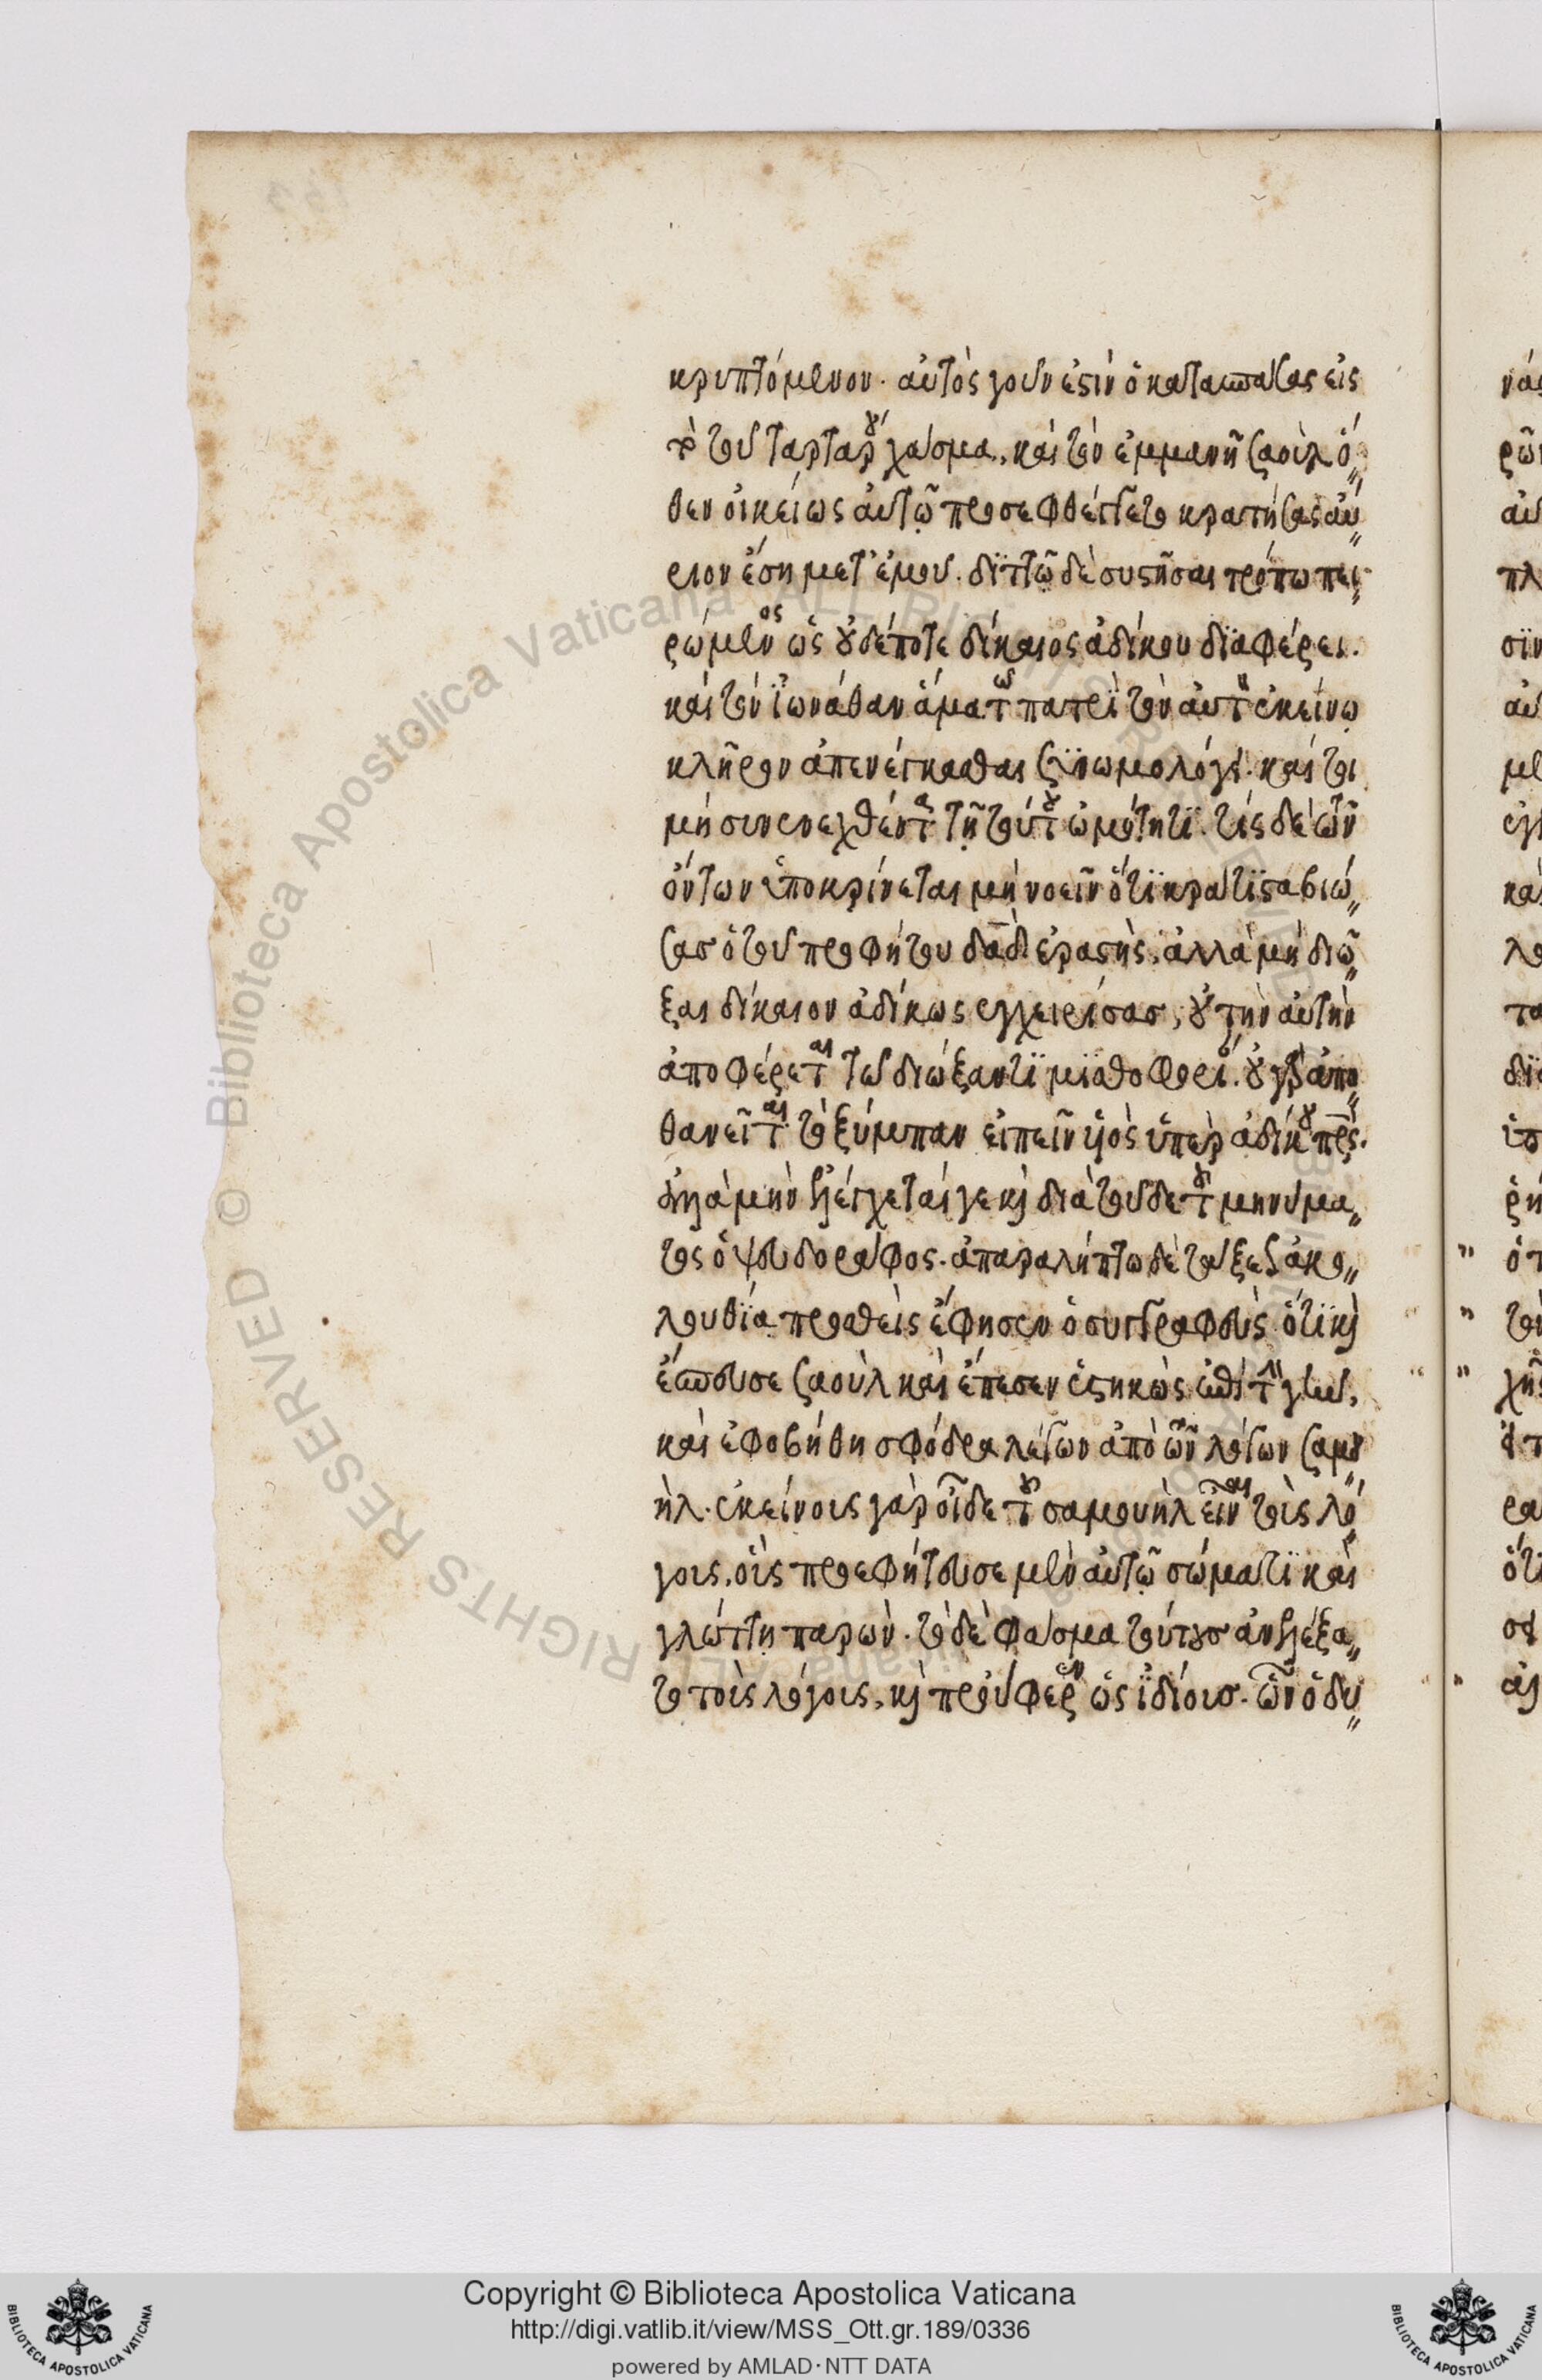 κρυπτόμενον. αὐτὸς γοῦν ἐστὶν ὁ κατασπάσας εἰς
τὸ τοῦ ταρτάρου χάσμα, καὶ τὸν ἐμμανῆ σαοὺλ ὅ
θεν οἰκείως αὐτῷ προσεφθέγγετο κρατήσας αὔ
ριον ἔση μετ' ἐμοῦ. διττῶ δὲ συστῆσαι τρόπω πει
ρώμενος ὡς οὐδέποτε δίκαιος ἀδίκου διαφέρει.
καὶ τὸν ϊωνάθαν ἅμα τῶ πατρὶ τὸν αὐτὸν ἐκείνῳ
κλῆρον ἀπενέγκασθαι συνωμολόγει. καί τοι
μὴ συνενεχθέντα τῇ τούτου ὠμότητι. τίς δὲ τῶν
ὄντων ἀποκρίνεται μὴ νοεῖν ὅτι κράτιστα βιώ
σασ ὁ τοῦ προφήτου δαδ ἐραστὴς, ἀλλὰ μὴ διῶ
ξαι δίκαιον ἀδίκως ἐγχειρίσασ, οὐ τὴν αὐτὴν
ἀποφέρεται τῶ διώξαντι μισθοφορί. οὐ γὰρ ἀπο
θανεῖται τὸ ξύμπαν εἰπεῖν υἱὸς ὑπὲρ ἀδίκου πρς.
ἀλλὰ μὴν ἐλέγχεταί γε καὶ διὰ τοῦδε τοῦ μηνύμα
τος ὁ ψευδοράφος. ἀπαραλήπτω δὲ τοῦ ἑξῆς ἀκο
λουθία προσθεὶς ἔφησεν ὁ συγγραφεὺς ὅτι καὶ
ἔσπευσε σαοὺλ καὶ ἔπεσεν ἑστηκὼς ἐπὶ τὴν γῆν,
καὶ ἐφοβήθη σφόδρα λέγων ἀπὸ τῶν λόγων σαμου
ήλ. ἐκείνους γὰρ οἶδε τοῦ σαμουὴλ εἶναι τοὺς λό
γους, οἷς προεφήτευσε μὲν αὐτῷ σώματι καὶ
γλώττη παρών. τὸ δὲ φάσμα τούτουσ ἀνελέξα
το τοῖς λόγοις, καὶ προὔφερεν ὡς ἰδίουσ. ὧν ὀδυ
Copyright © Biblioteca Apostolica Vaticana
http://digi.vatlib.it/view/MSS_Ott.gr.189/0336
powered by AMLAD·NTT DATA